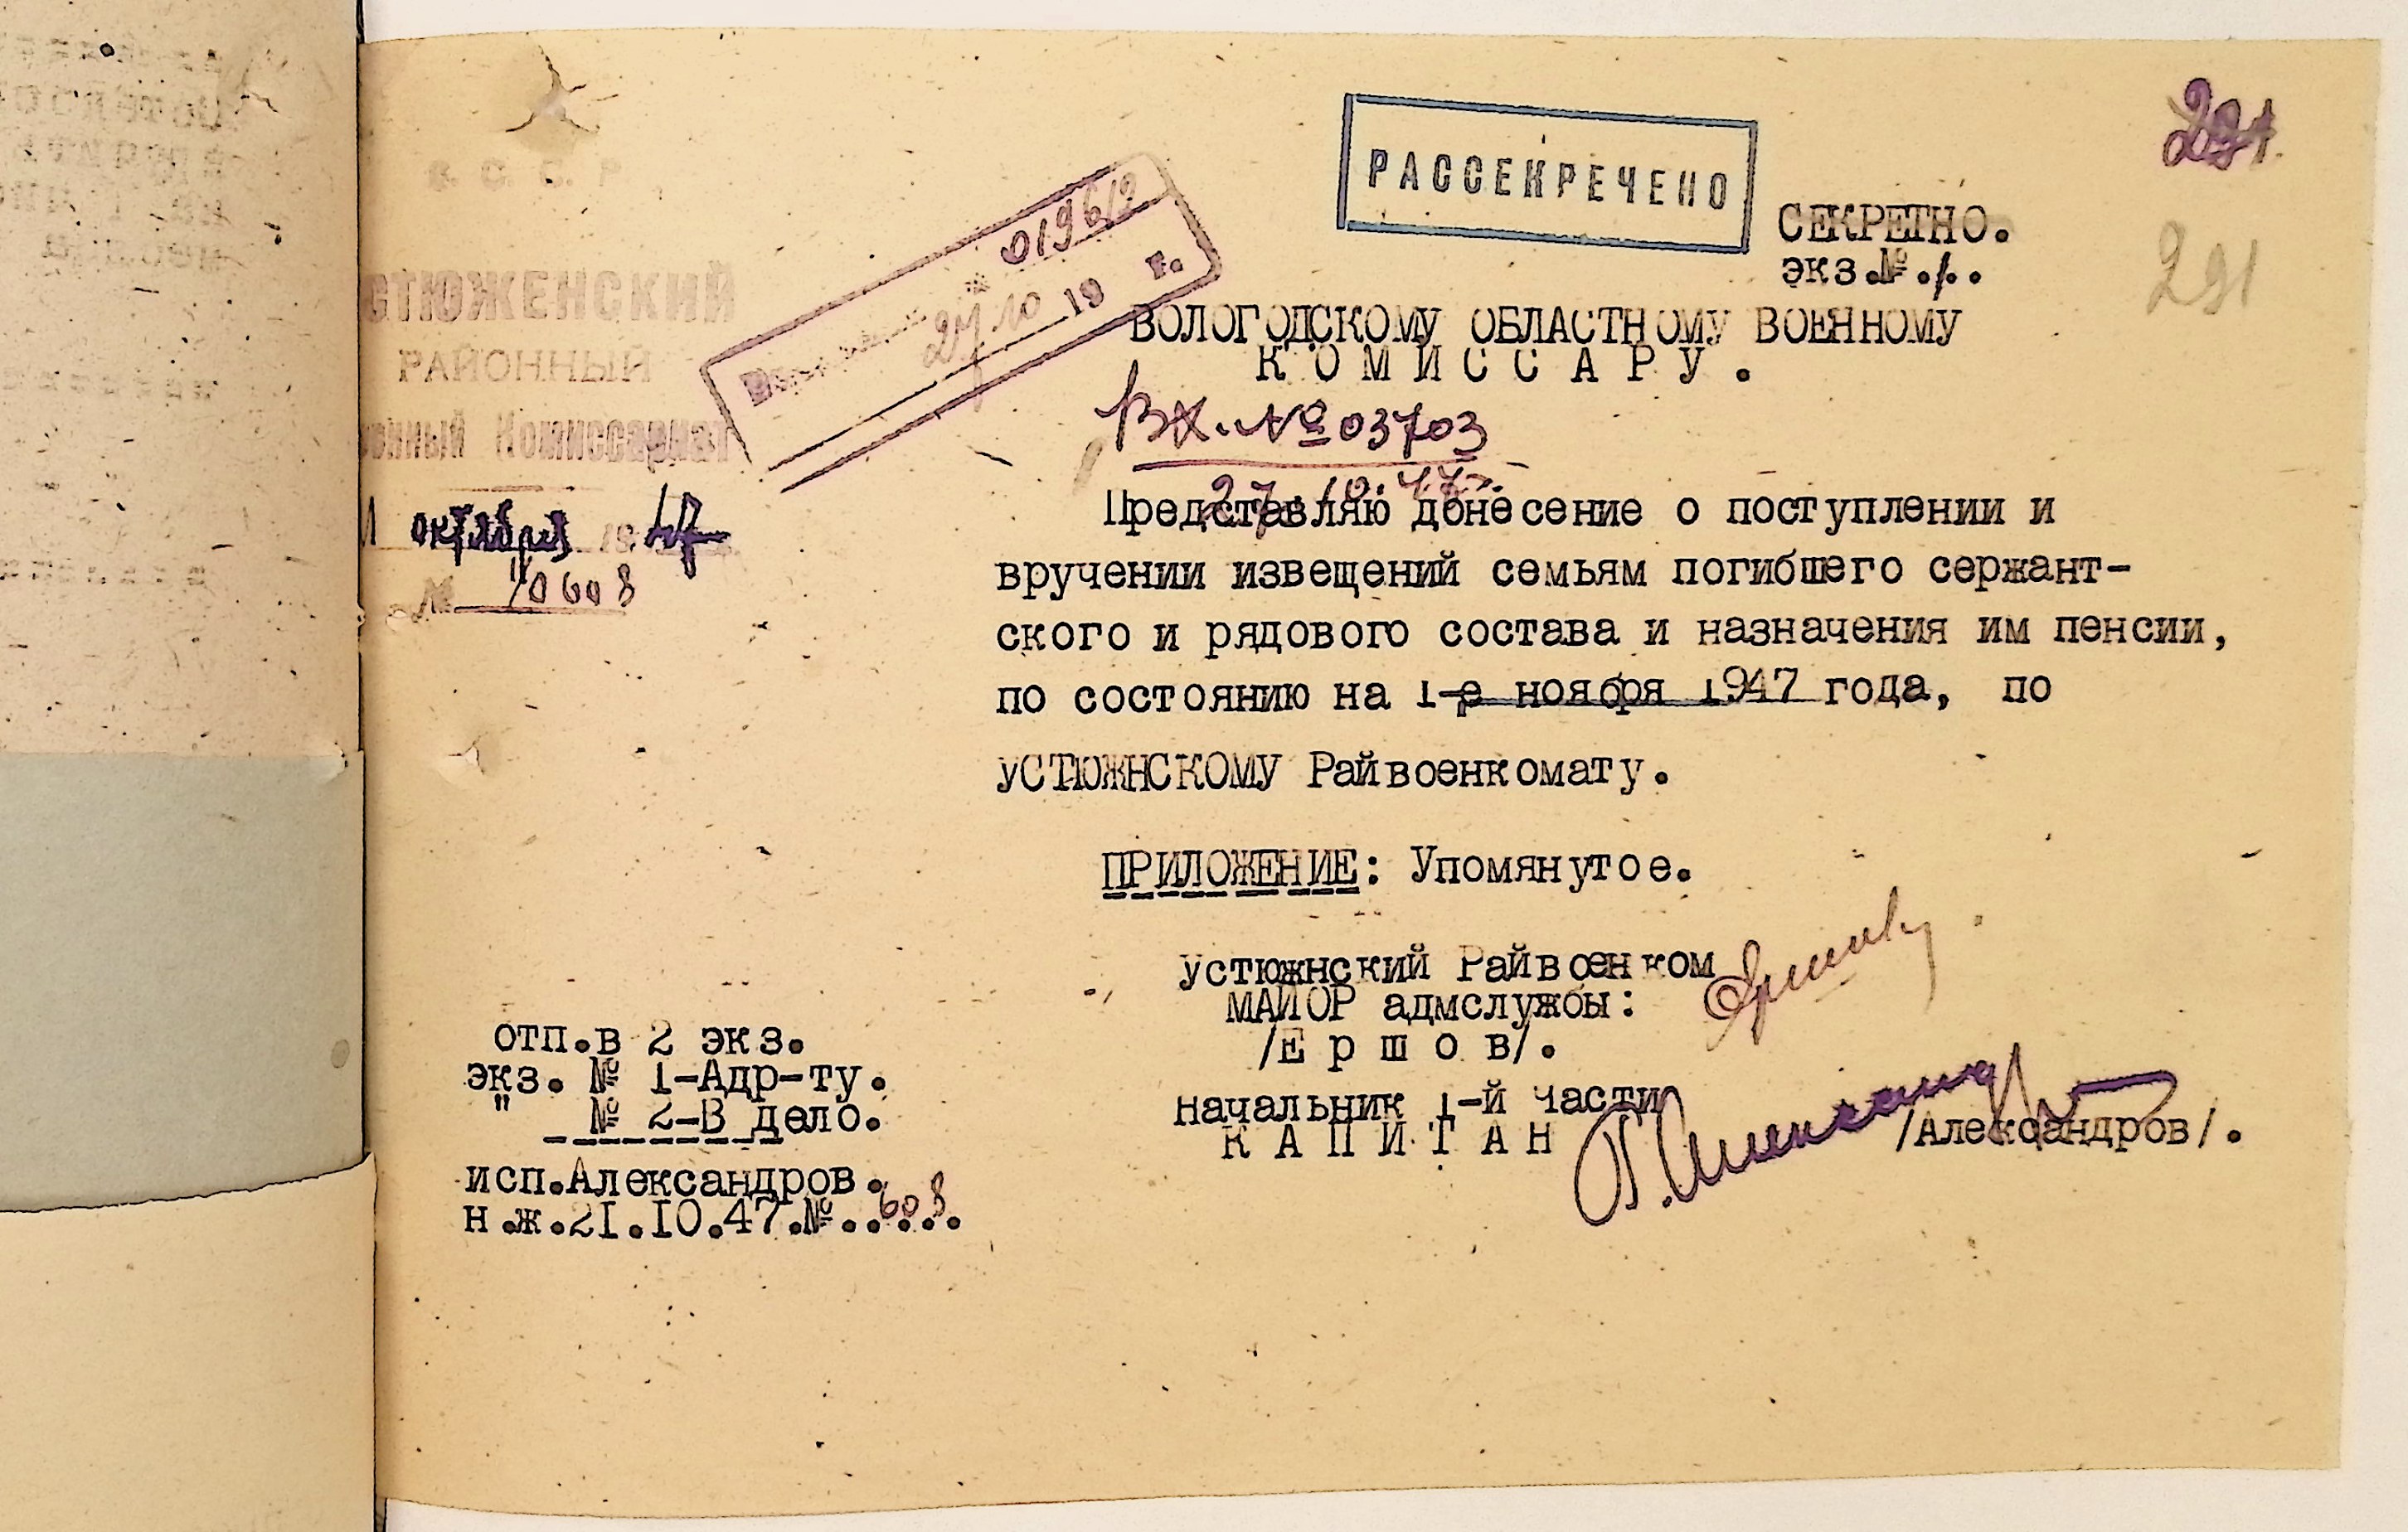 291
РАССЕКРЕЧЕНО
СЕКРЕТНО.
экз.№.1..
291
С. С. Р
СТЮЖЕНСКИЙ
РАЙОННЫЙ
енный Комиссариат
октября 19 47
№ 0608
0196/2
27/10 19 г.
ВОЛОГОДСКОМУ ОБЛАСТНОМУ ВОЕННОМУ
К О М И С С А Р У .
Вх. № 03703
27. 10. 47
Представляю донесение о поступлении и
вручении извещений семьям погибшего сержант-
ского и рядового состава и назначения им пенсии,
по состоянию на 1-е ноября 1947 года, по
УСТЮЖНСКОМУ Райвоенкомату.
ПРИЛОЖЕНИЕ: Упомянутое.
устюжнский Райвоенком
МАЙОР адмслужбы:
/Е р ш о в/.
начальник 1-й части
К А П И Т А Н /Александров/.
отп.в 2 экз.
экз. № 1-Адр-ту.
" № 2-В дело.
исп.Александров.
н.ж.21.10.47.№..608..